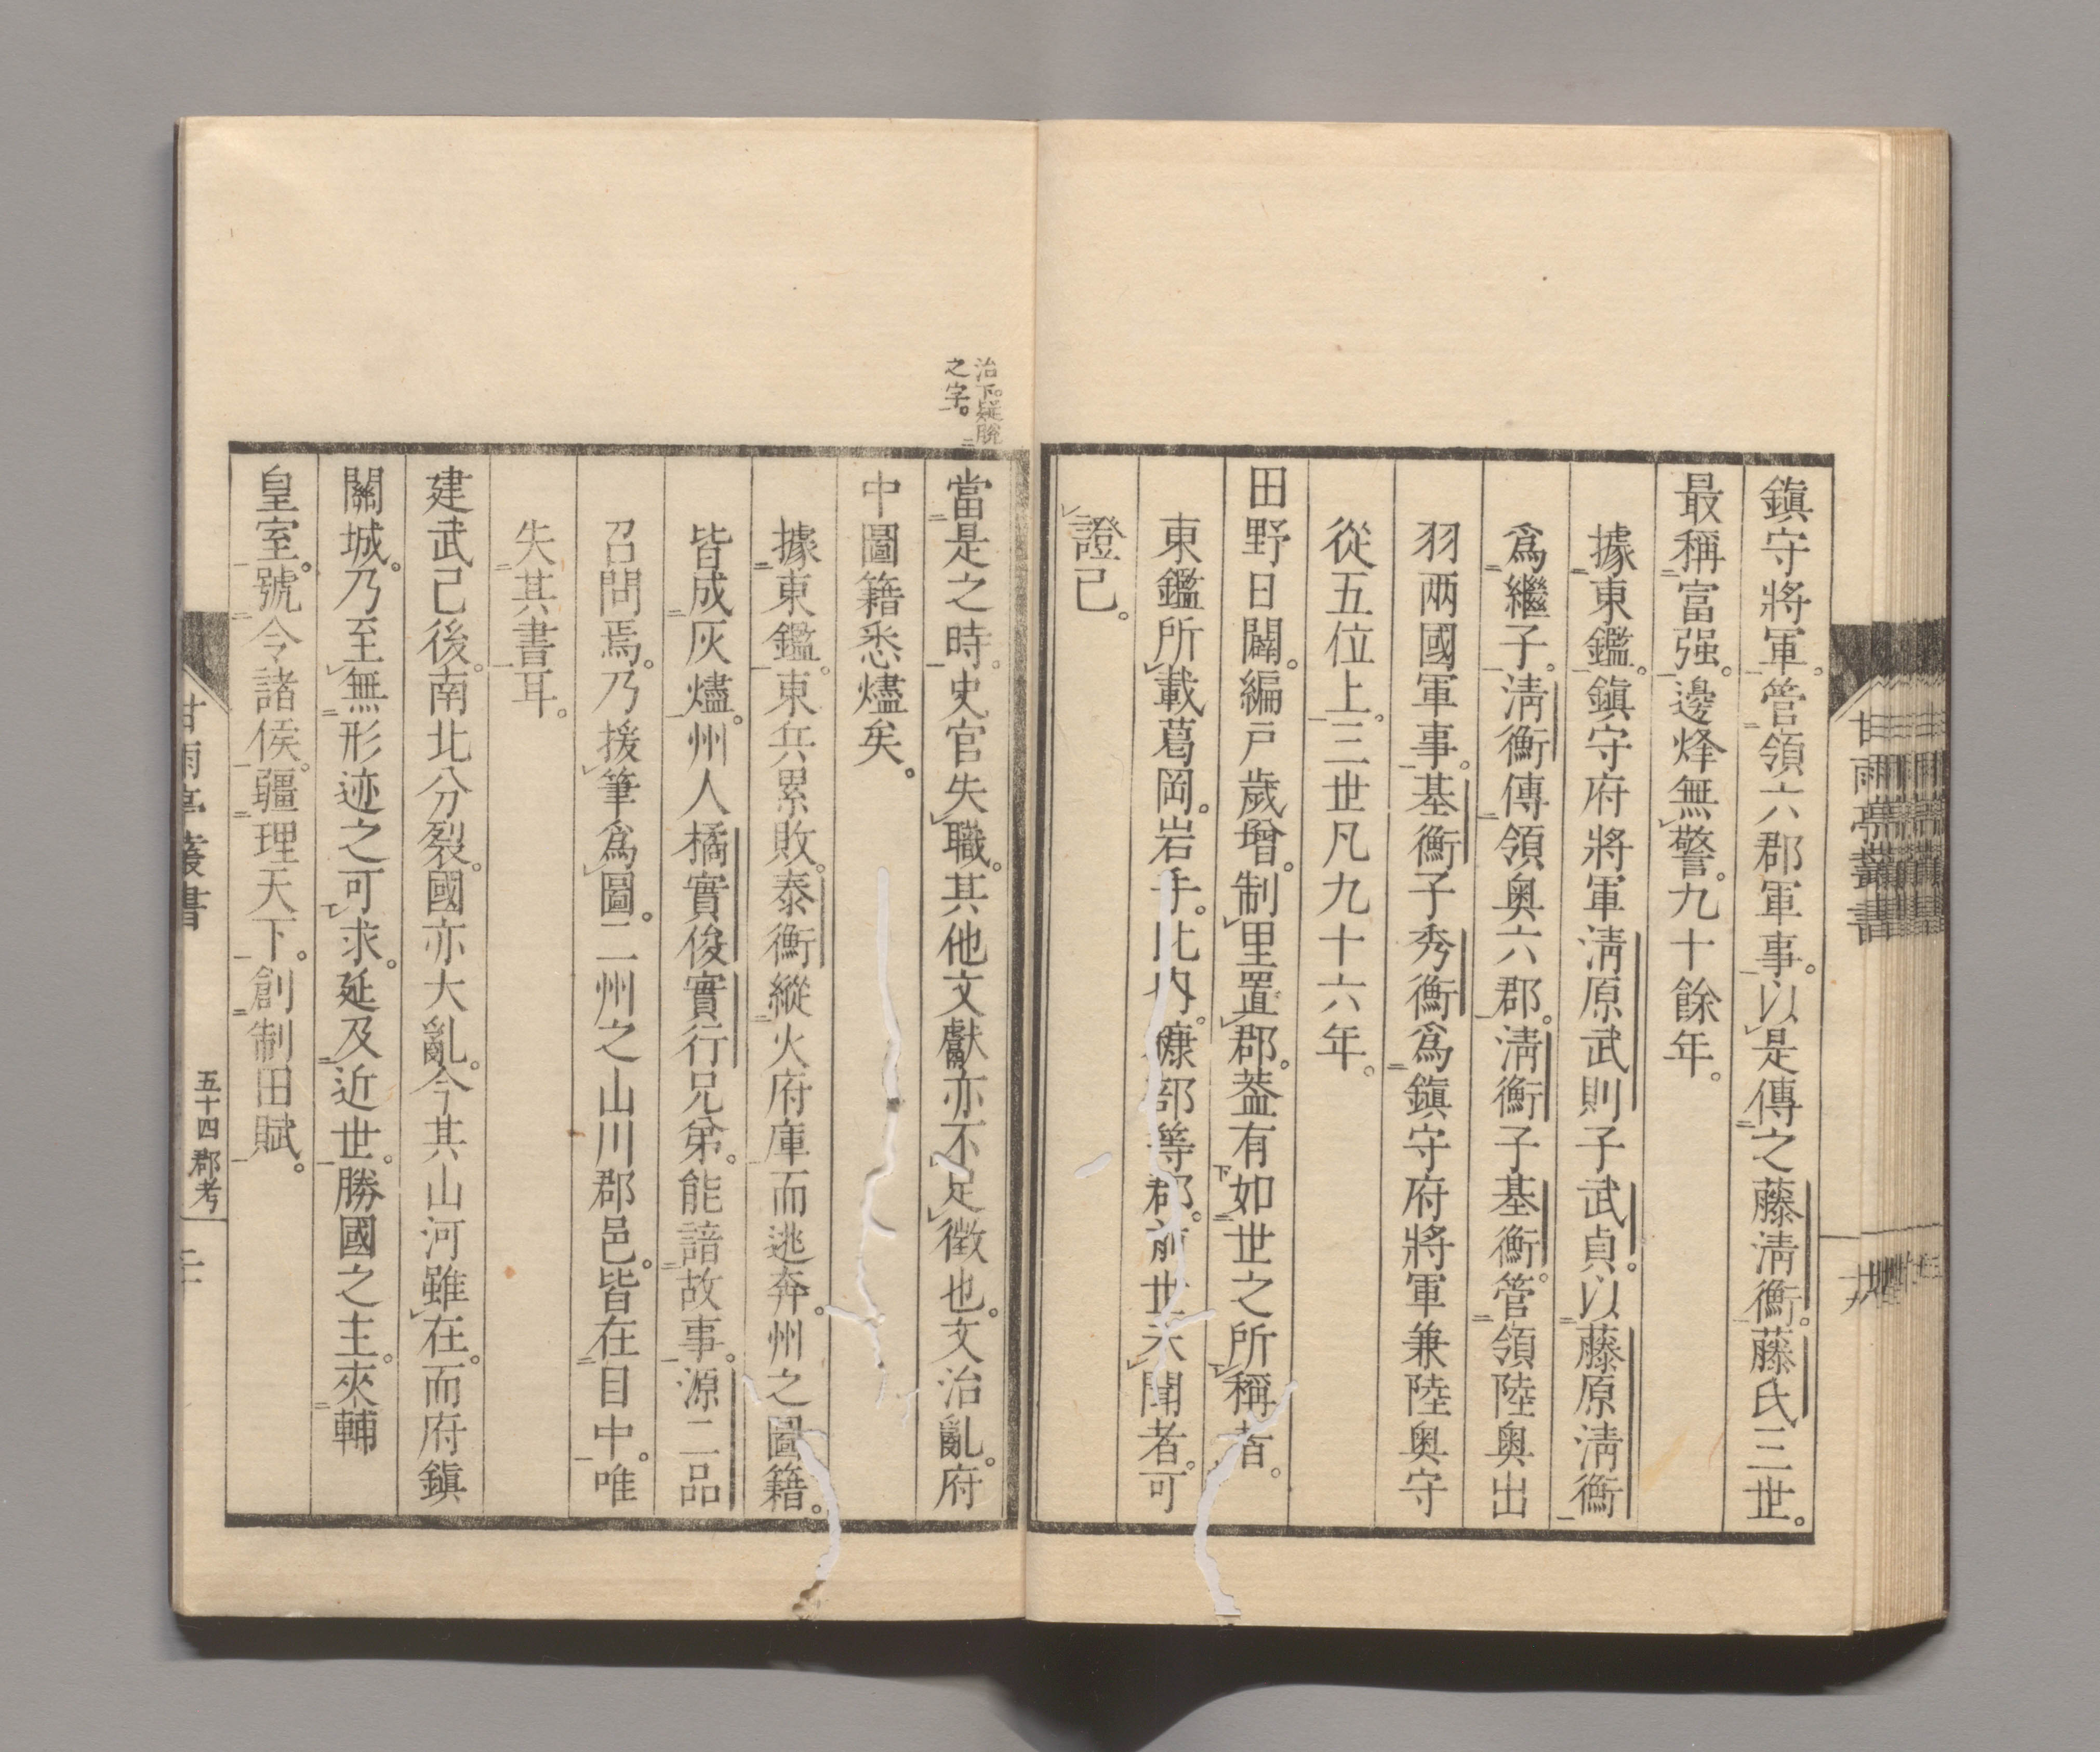 鎭守將軍。管領六郡軍事。以是傳之藤淸衡。藤氏三世。
最稱富强。邊烽無警。九十餘年。
據東鑑。鎭守府將軍淸原武則子武貞。以藤原淸衡
爲繼子。淸衡傳領奥六郡。淸衡子基衡。管領陸奥出
羽兩國軍事。基衡子秀衡爲鎭守府將軍兼陸奥守
從五位上。三世凡九十六年。
田野日闢。編戸歲增。制里置郡。葢有如世之所稱者。
東鑑所載葛岡。岩手。比内。糠部等郡。前世未聞者。可
證已。
治下。疑脫
之字。
當是之時。史官失職。其他文獻亦不足徵也。文治亂。府
中圖籍悉燼矣。
據東鑑。東兵累敗。泰衡縱火府庫而逃奔。州之圖籍。
皆成灰燼。州人橘實俊實行兄弟。能諳故事。源二品
召問焉。乃援筆爲圖。二州之山川郡邑。皆在目中。唯
失其書耳。
建武已後。南北分裂。國亦大亂。今其山河雖在。而府鎭
關城。乃至無形迹之可求。延及近世。勝國之主。來輔
皇室。號令諸侯。疆理天下。創制田賦。
甘雨亭叢書
五十四郡考
甘雨亭叢書